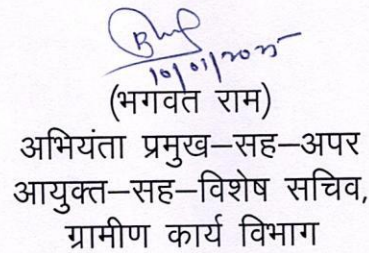 10/01/2025
(भगवत राम)
अभियंता प्रमुख–सह–अपर
आयुक्त–सह–विशेष सचिव,
ग्रामीण कार्य विभाग